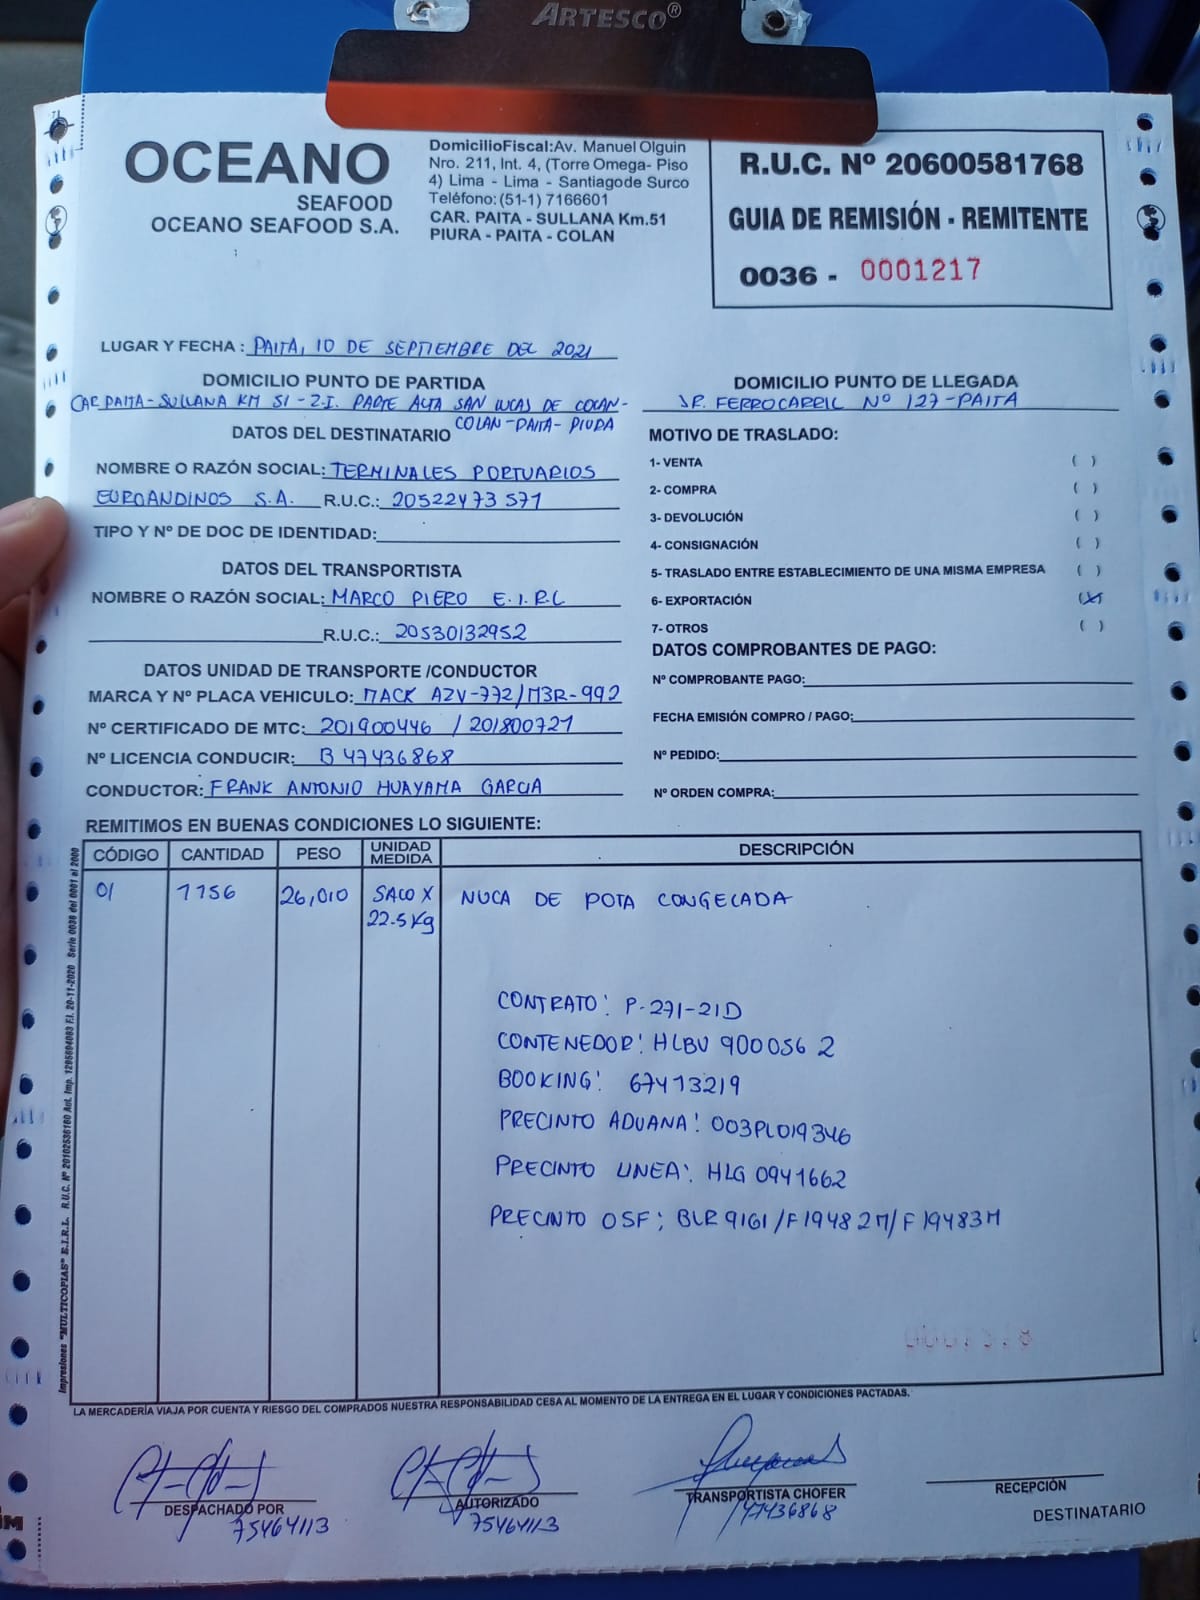 ARTESCO®
OCEANO
SEAFOOD
OCEANO SEAFOOD S.A.
DomicilioFiscal:Av. Manuel Olguin
Nro. 211, Int. 4, (Torre Omega- Piso
4) Lima - Lima - Santiagode Surco
Teléfono: (51-1) 7166601
CAR. PAITA - SULLANA Km.51
PIURA - PAITA - COLAN
R.U.C. Nº 20600581768
GUIA DE REMISIÓN - REMITENTE
0036 - 0001217
LUGAR Y FECHA : PAITA, 10 DE SEPTIEMBRE DEL 2021
DOMICILIO PUNTO DE PARTIDA
CAR. PAITA - SULLANA KM 51 - Z.I. PARTE ALTA SAN LUCAS DE COLAN-
COLAN-PAITA- PIURA
DOMICILIO PUNTO DE LLEGADA
JR. FERROCARRIL Nº 127-PAITA
DATOS DEL DESTINATARIO
NOMBRE O RAZÓN SOCIAL: TERMINALES PORTUARIOS
EUROANDINOS S.A. R.U.C.: 20522473571
TIPO Y Nº DE DOC DE IDENTIDAD:
DATOS DEL TRANSPORTISTA
NOMBRE O RAZÓN SOCIAL: MARCO PIERO E.I.R.L
R.U.C.: 20530132952
DATOS UNIDAD DE TRANSPORTE /CONDUCTOR
MARCA Y Nº PLACA VEHICULO: MACK AZV-772/M3R-992
Nº CERTIFICADO DE MTC: 201900446 / 201800721
Nº LICENCIA CONDUCIR: B 47436868
CONDUCTOR: FRANK ANTONIO HUAYAMA GARCIA
MOTIVO DE TRASLADO:
1- VENTA ( )
2- COMPRA ( )
3- DEVOLUCIÓN ( )
4- CONSIGNACIÓN ( )
5- TRASLADO ENTRE ESTABLECIMIENTO DE UNA MISMA EMPRESA ( )
6- EXPORTACIÓN (X)
7- OTROS ( )
DATOS COMPROBANTES DE PAGO:
Nº COMPROBANTE PAGO:
FECHA EMISIÓN COMPRO / PAGO:
Nº PEDIDO:
Nº ORDEN COMPRA:
REMITIMOS EN BUENAS CONDICIONES LO SIGUIENTE:
CÓDIGO CANTIDAD PESO UNIDAD MEDIDA DESCRIPCIÓN
01 1156 26,010 SACO X NUCA DE POTA CONGELADA
22.5 Kg
CONTRATO: P-271-21D
CONTENEDOR: HLBU 900056 2
BOOKING: 67413219
PRECINTO ADUANA: 003PL019346
PRECINTO LINEA: HLG 0941662
PRECINTO OSF: BLR 9161/F19482M/F19483M
Impresiones "MULTICOPIAS" E.I.R.L. R.U.C. Nº 20102536160 Aut. Imp. 1265604083 F.I. 20-11-2020 Serie 0036 del 0001 al 2000
LA MERCADERÍA VIAJA POR CUENTA Y RIESGO DEL COMPRADOS NUESTRA RESPONSABILIDAD CESA AL MOMENTO DE LA ENTREGA EN EL LUGAR Y CONDICIONES PACTADAS.
DESPACHADO POR
75464113
AUTORIZADO
75464113
TRANSPORTISTA CHOFER
47436868
RECEPCIÓN
DESTINATARIO